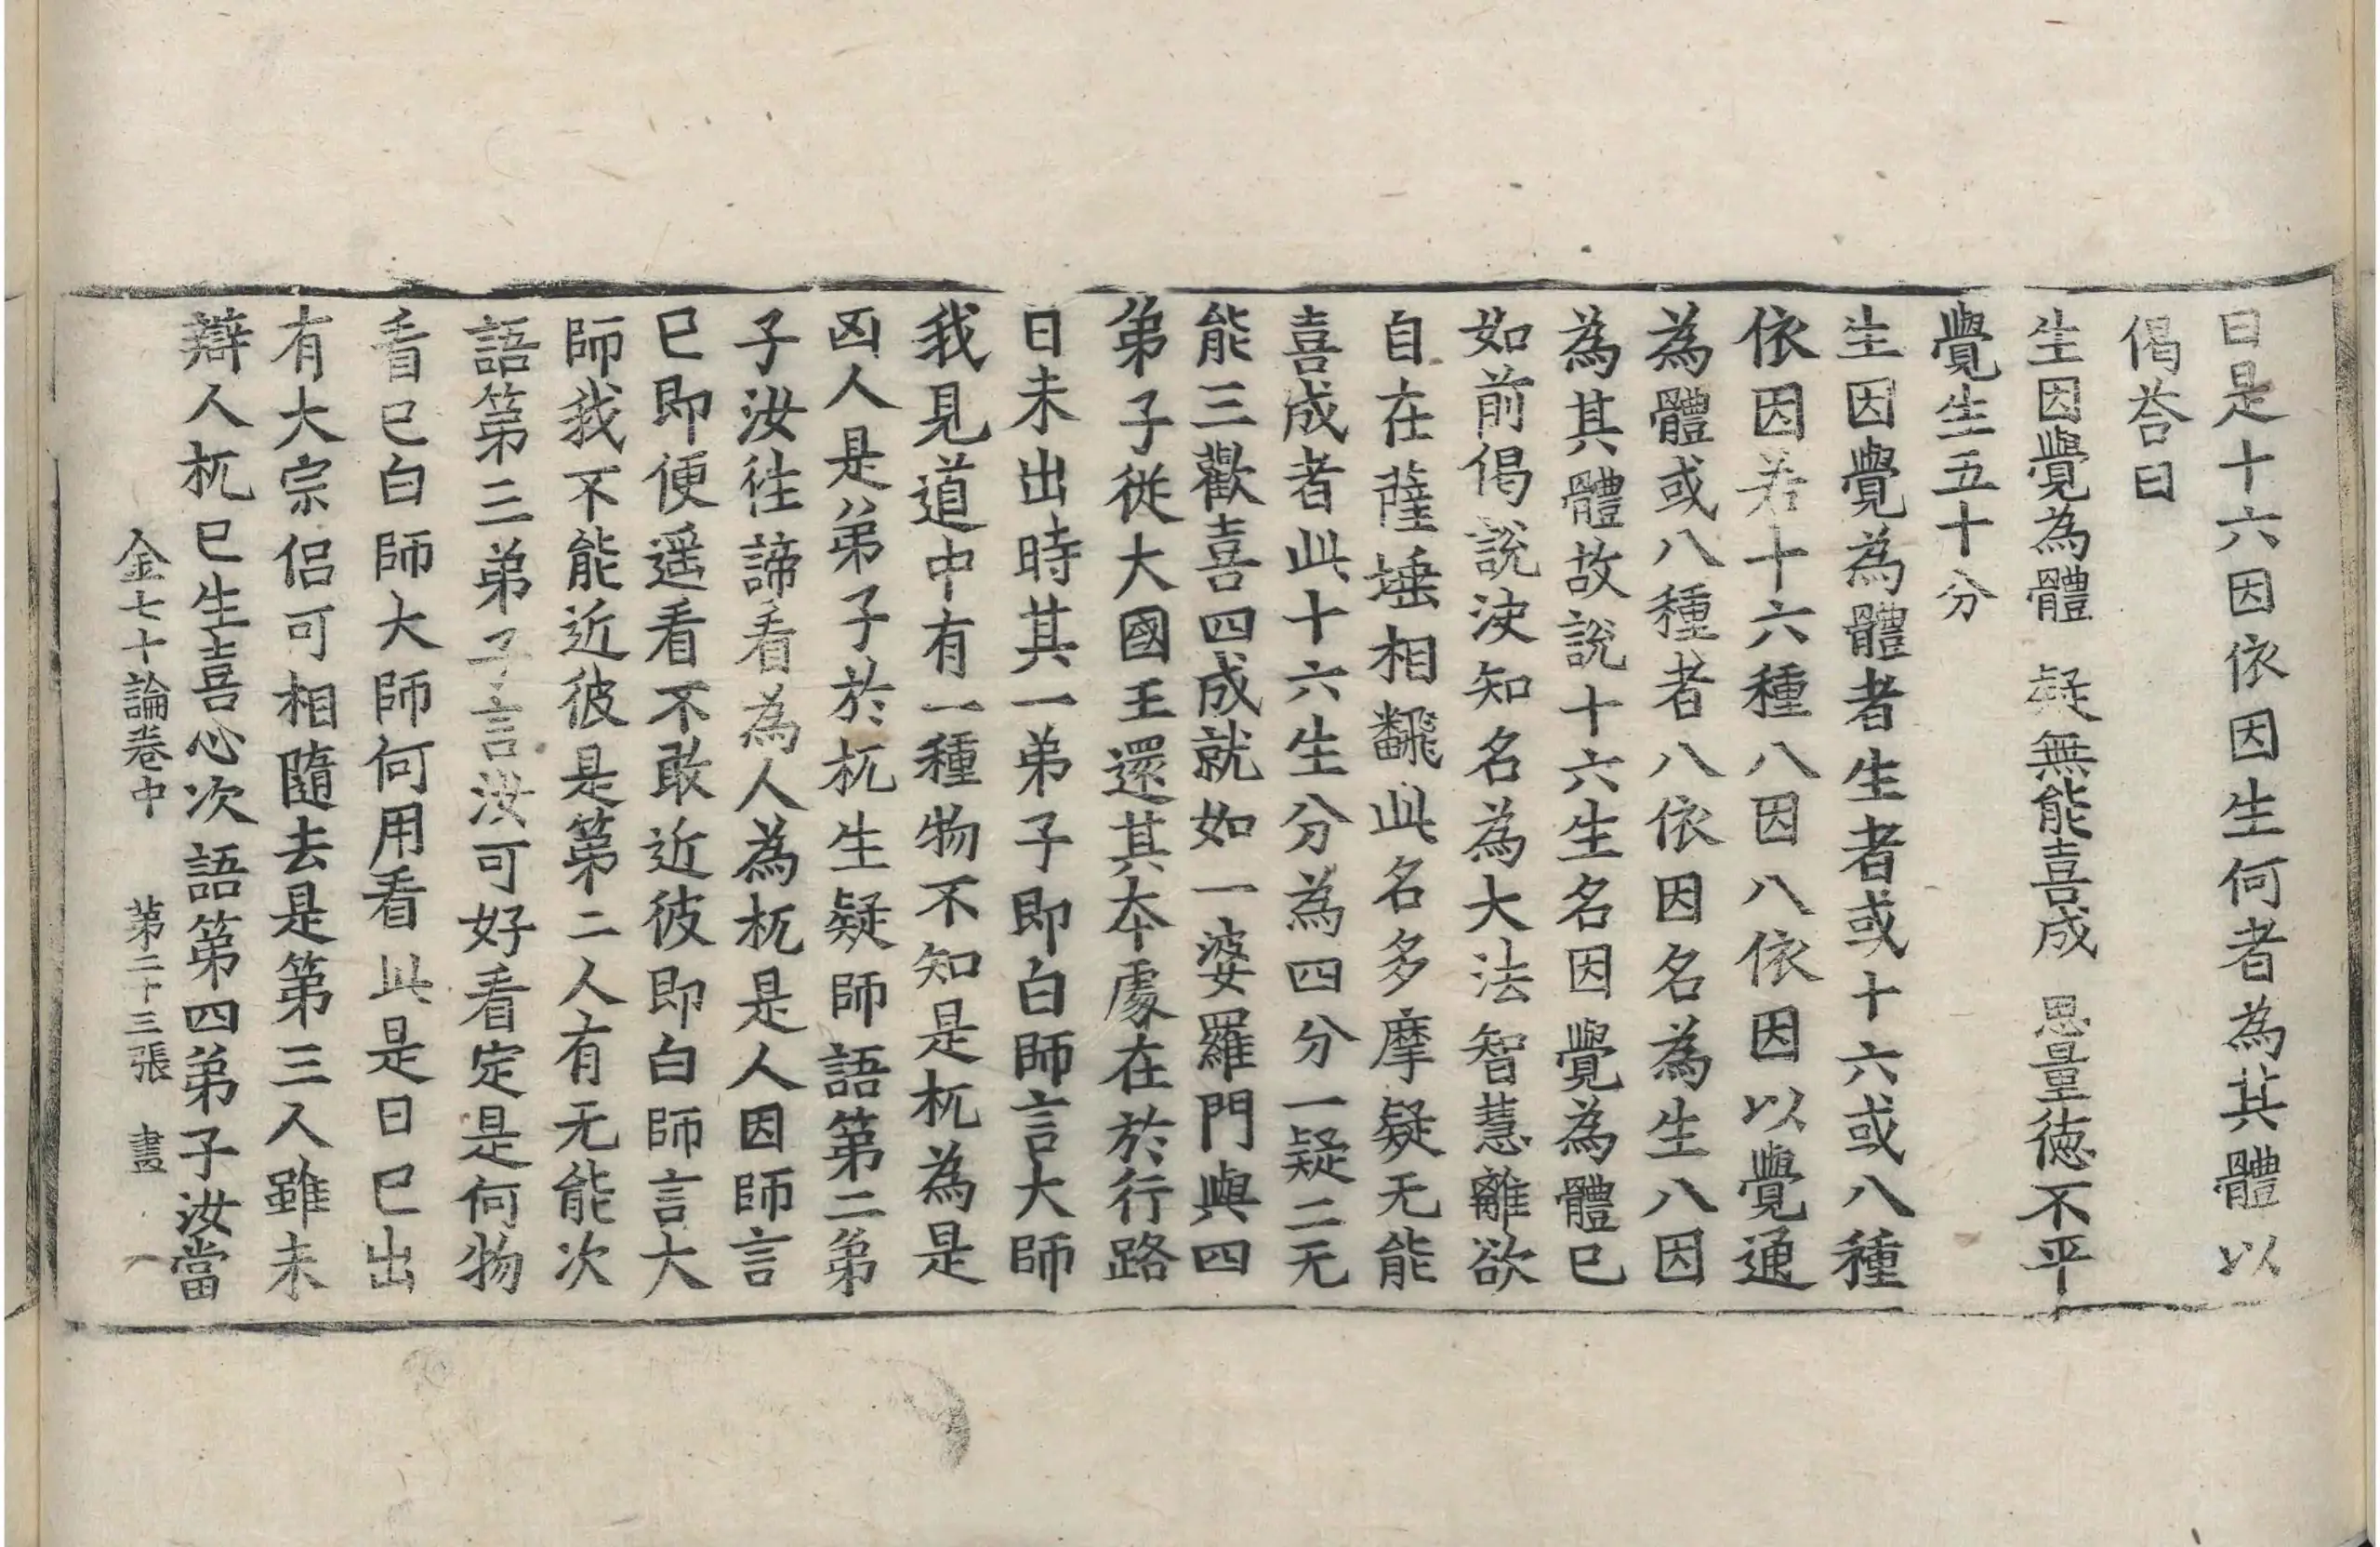 曰是十六因依因生何者為其體以
偈荅曰
生因覺為體 疑無能喜成 思量德不平
覺生五十分
生因覺為體者生者或十六或八種
依因若十六種八因八依因以覺通
為體或八種者八依因名為生八因
為其體故說十六生名因覺為體已
如前偈說決知名為大法智慧離欲
自在薩埵相翻此名多摩疑无能
喜成者此十六生分為四分一疑二无
能三歡喜四成就如一婆羅門與四
弟子從大國王還其本處在於行路
日未出時其一弟子即白師言大師
我見道中有一種物不知是杌為是
凶人是弟子於杌生疑師語第二弟
子汝往諦看為人為杌是人因師言
已即便遥看不敢近彼即白師言大
師我不能近彼是第二人有无能次
語第三弟子言汝可好看定是何物
看已白師大師何用看此是日已出
有大宗侣可相隨去是第三人雖未
辯人杌已生喜心次語第四弟子汝當
金七十論卷中 第二十三張 畫